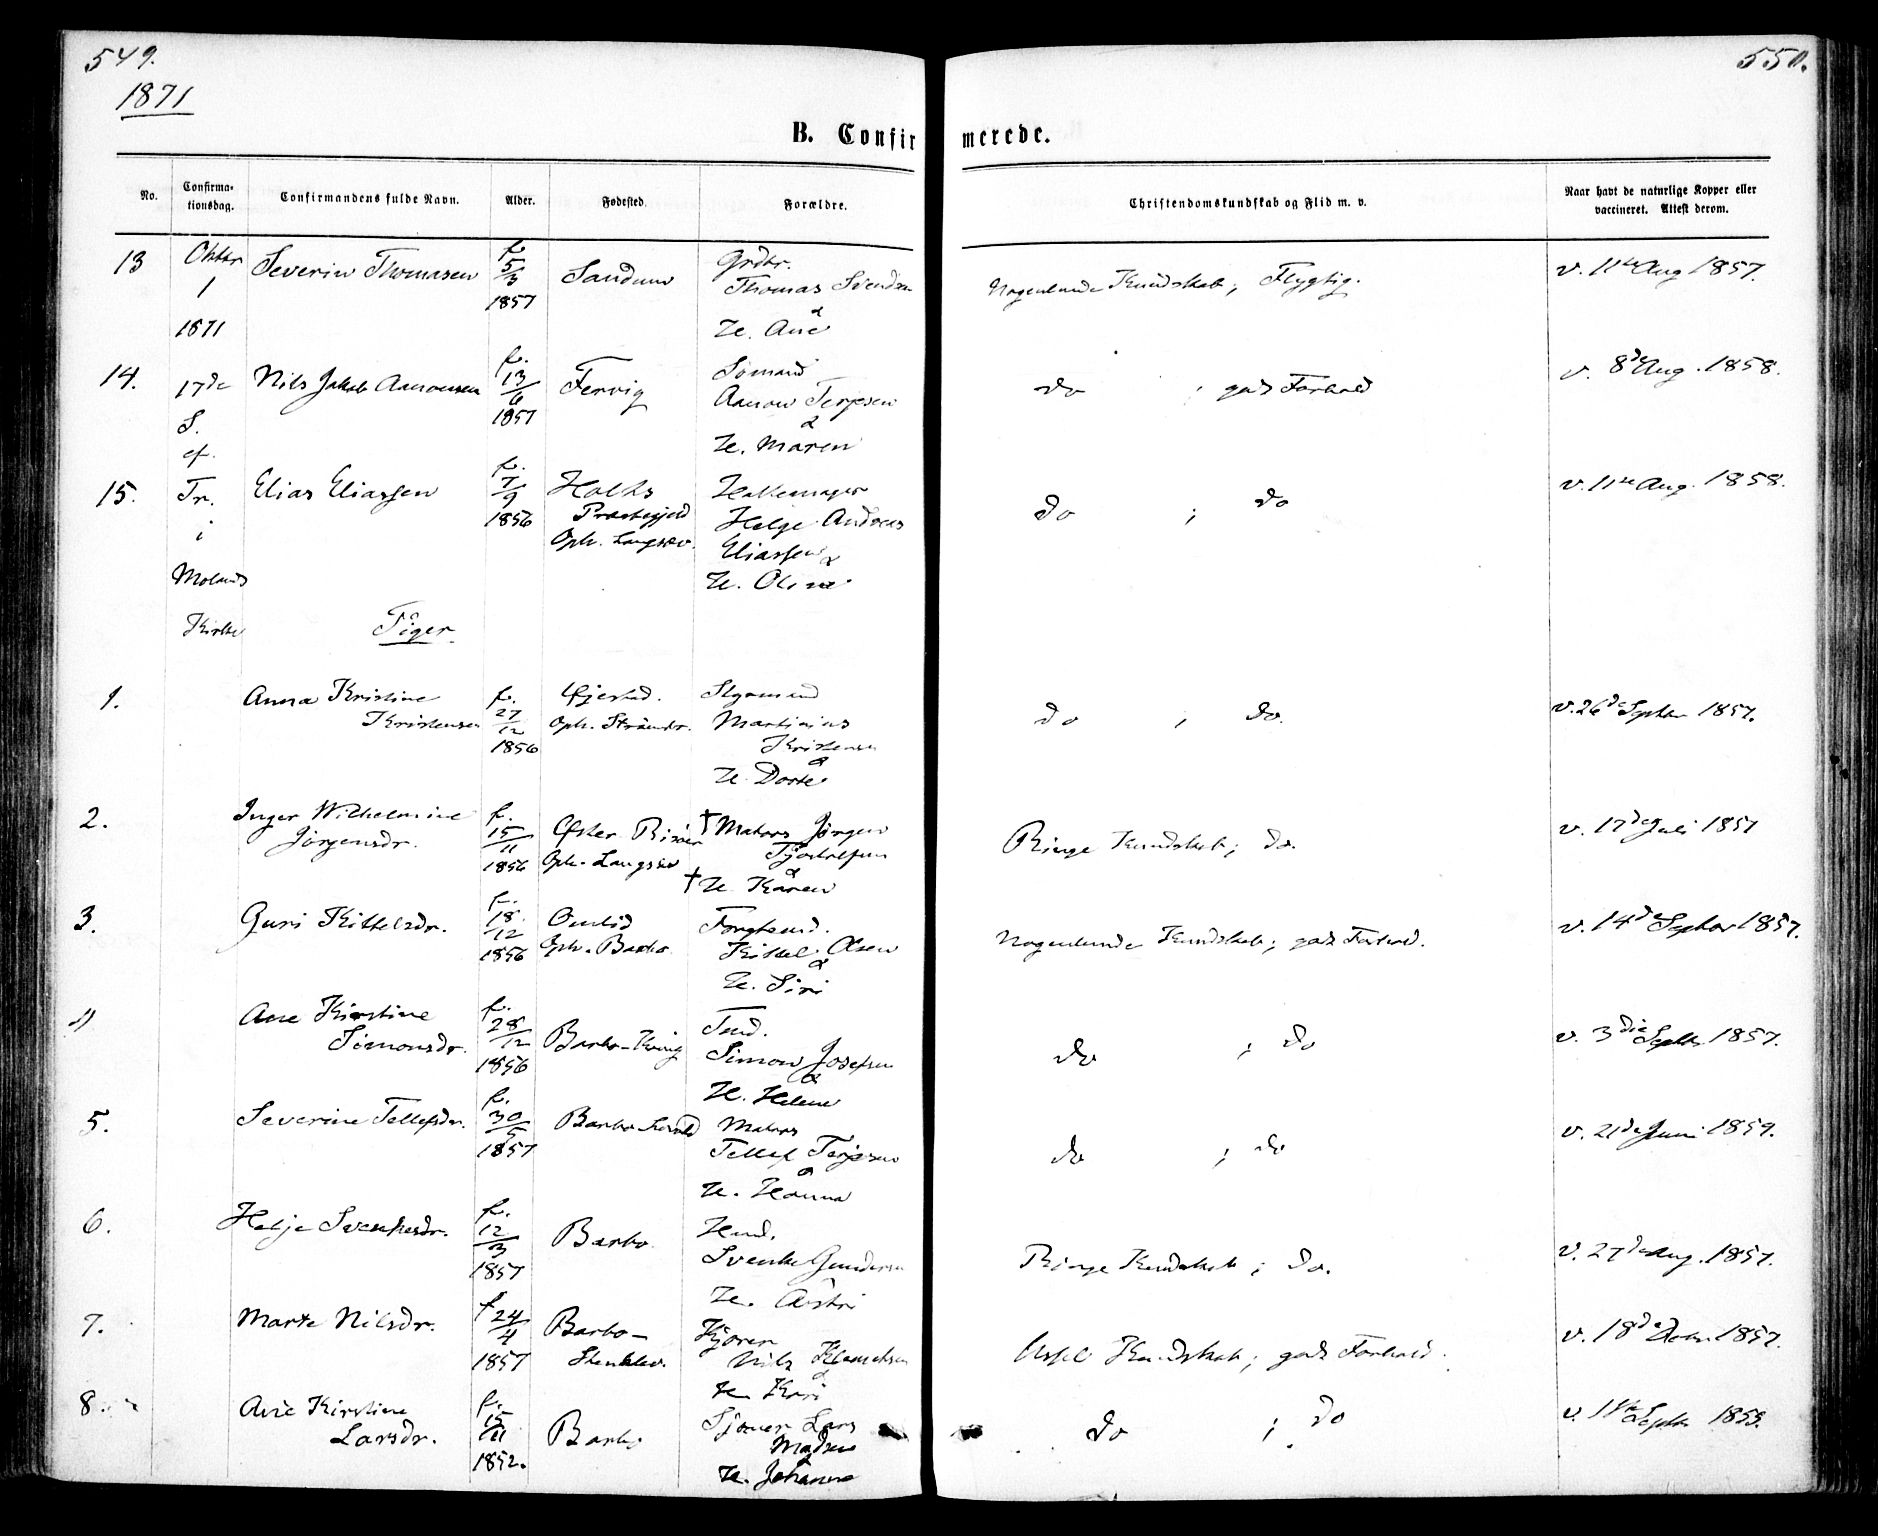 549.
550.
1871
B. Confirmerede.
No.
Confirma-
tionsdag.
Confirmandens fulde Navn.
Alder.
Fødested.
Forældre.
Christendomskundskab og Flid m. v.
Naar havt de naturlige Kopper eller
vaccineret. Attest derom.
13 Oktbr Severin Thomasen f. 5/3 1857 Grdbr.
1 Thomas Svendsen
1871 H. Ane
Nogenlunde Kundskab; Flygtig. v. 11te Aug 1857.
14. 17de Nils Jakob Aanonsen f. 13/6 1857 Fervig Sømand
S. Aanon Terjesen &
ef. H. Maren
do ; godt Forhold v. 8de Aug. 1858.
15. Tr. Elias Eliassen f. 7/9 1856 Holts
Præstegjeld
Oph. Langsæv.
i Helge Andreas
Molands Eliassen &
H. Olina
do ; do v. 11te Aug. 1858.
Kirke
Piger
1. Anna Kristine
Kristensen f. 27/12 1856 Øjestad.
Martinius
Kristensen
&
H. Dorte
do ; do. v. 26de Septbr 1857.
2. Inger Wilhelmine
Jörgensdr. f. 15/11 1856 Øster Risöer
Oph. Langsæv
† Matros Jörgen
&
† H. Karen
Ringe Kundskab; do. v. 17de Juli 1857
3. Guri Kittelsdr. f. 18/12 1856 Omlid
Oph. Barbo
Kittel Olsen
&
H. Siri
Nogenlunde Kundskab; godt Forhold. v. 14de Septbr 1857.
4 Ane Kirstine
Simonsdr. f. 28/12 1856
Tmd.
Simon Josefsen
&
H. Helene
do ; do v. 3die Septbr 1857.
5. Severine Tellefsdr. f. 30/5 1857 Barbo
Matros
Tellef Terjesen
&
H. Hanna
do ; do v. 21de Juni 1859.
6. Helje Svenkesdr. f. 12/3 1857 Barbo
Hmd.
Svenke Gundersen
H. Astri
Ringe Kundskab; do. v. 27de Aug. 1857.
7. Marte Nilsdr. f. 24/4 1857 Barbo-
Stenklev.
Kjörer
Nils
&
H. Kari
Usel Kundskab; godt Forhold. v. 18de 1857.
8. Ane Kirstine
Larsdr. f. 15/11 1852. Barbo
Lars
Madsen
H. Johanne
do ; do v. Septbr